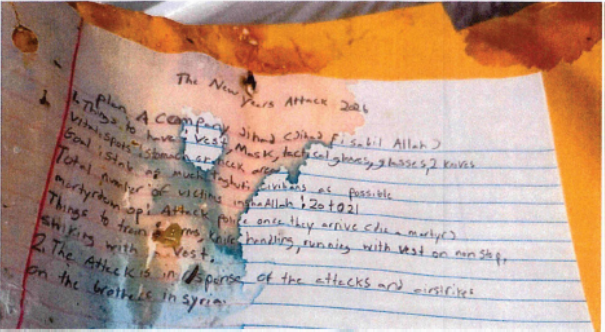 The New Years Attack 2026
Plan A company Jihad (Jihad fi sabil Allah)
1. Things to have: vest, Mask, tactical gloves, glasses, 2 knives
vital spots: stomach or neck area
Goal: stab as much civilians as possible
Total number of victims inshaAllah: 20 to 21
martyrdom op: Attack police once they arrive (die a martyr)
Things to train: arms, knife handling, running with vest on non stop,
with vest.
2. The Attack is in of the attacks and airstrikes
on the brothers in syria.